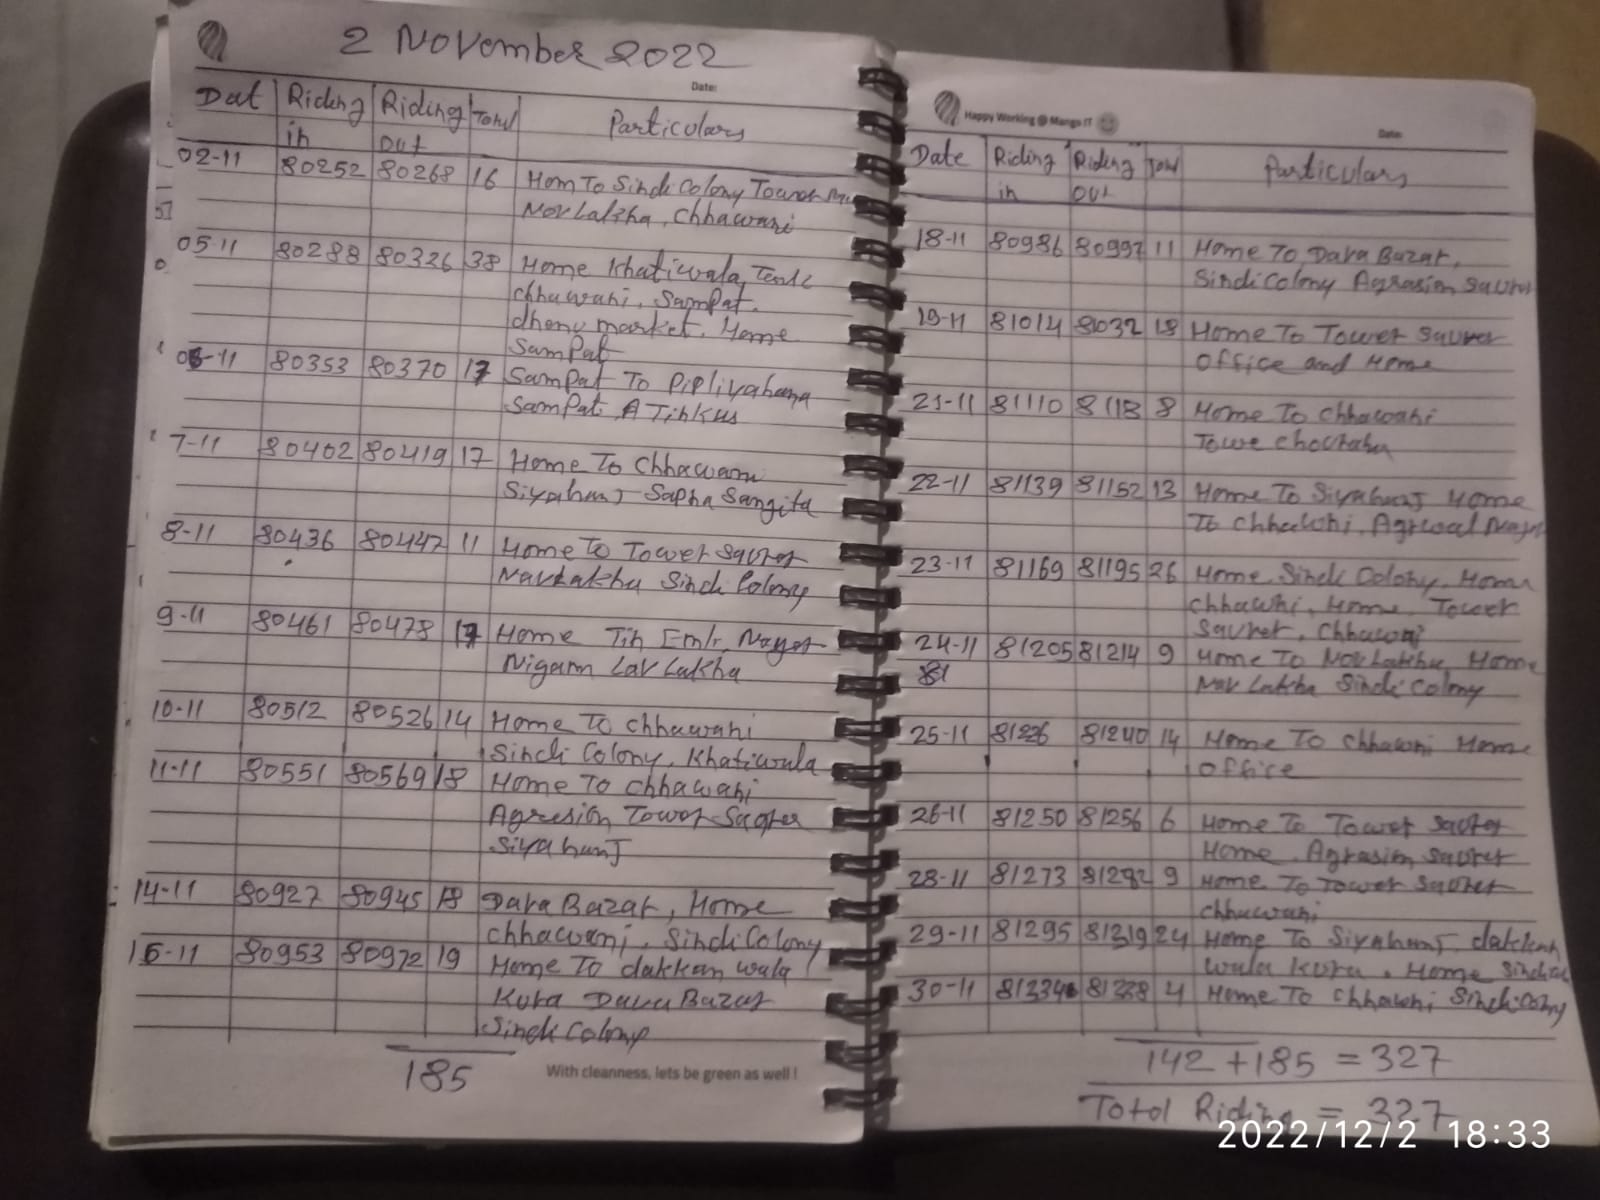 2 November 2022
Date:
Dat Riding in Riding out Total Particulars
02-11 80252 80268 16 Hom To Sindi Colony Tower
Nov Lakha, Chhawani
05-11 80288 80326 38 Home Khatiwala Tank
chhawani, Sampat.
dhenu market. Home
Sampat
06-11 80353 80370 17 Sampat To Pipliyahana
Sampat A Tinkus
7-11 80402 80419 17 Home To Chhawani
Siyahunj Sapna Sangita
8-11 80436 80447 11 Home To Tower Squrer
Navlakha Sindi Colony
9-11 80461 80478 17 Home Tin Emlr. Nager
Nigam Lav Lakha
10-11 80512 80526 14 Home To chhawani
Sindi Colony, Khatiwala
11-11 80551 80569 18 Home To chhawani
Agresion Tower Suqrer
Siyahunj
14-11 80927 80945 18 Dava Bazar, Home
chhawani, Sindi Colony
15-11 80953 80972 19 Home To dakkan wala
Kuva Dava Bazar
Sindi Colony
185
With cleanness, lets be green as well !
Happy Working @ Mango IT
Date:
Date Riding in Riding out Total Particulars
18-11 80986 80997 11 Home To Dava Bazar,
Sindi Colony Agrasion Saurer
19-11 81014 81032 18 Home To Tower Saurer
office and Home
21-11 81110 81118 8 Home To Chhawani
Towe chourahu
22-11 81139 81152 13 Home To Siyahunj Home
To chhawni, Agrwal
23-11 81169 81195 26 Home, Sindi Colony, Home
Chhawni, Home, Tower
Saurer, Chhawni
24-11 81205 81214 9 Home To Nov Lakha, Home
81 Nav Lakha Sindi Colony
25-11 81226 81240 14 Home To Chhawni Home
office
26-11 81250 81256 6 Home To Tower Saurer
Home. Agrasion Saurer
28-11 81273 81282 9 Home To Tower Saurer
Chhuwani
29-11 81295 81319 24 Home To Siyahunj, dakkan
wala Kuva, Home
30-11 81334 81338 4 Home To Chhawni Sindi Colny
142 + 185 = 327
Totol Riding = 327
2022/12/2 18:33